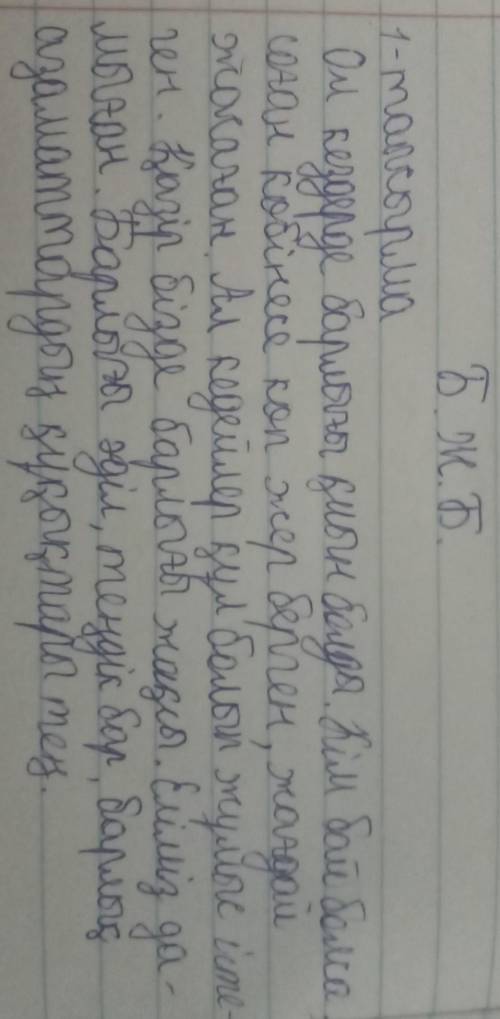 Б.Ж.Б.
1-тапсырма
Ол кездерде барлығы қиын болды. Кім бай болса
соған көбінесе көп жер берген, жағдай
жасаған. Ал кедейлер құл болып жұмыс істе-
ген. Қазір бізде барлығы жақсы. Еліміз да-
мыған. Барлығы әділ, теңдік бар, барлық
азаматтардың құқықтары тең.